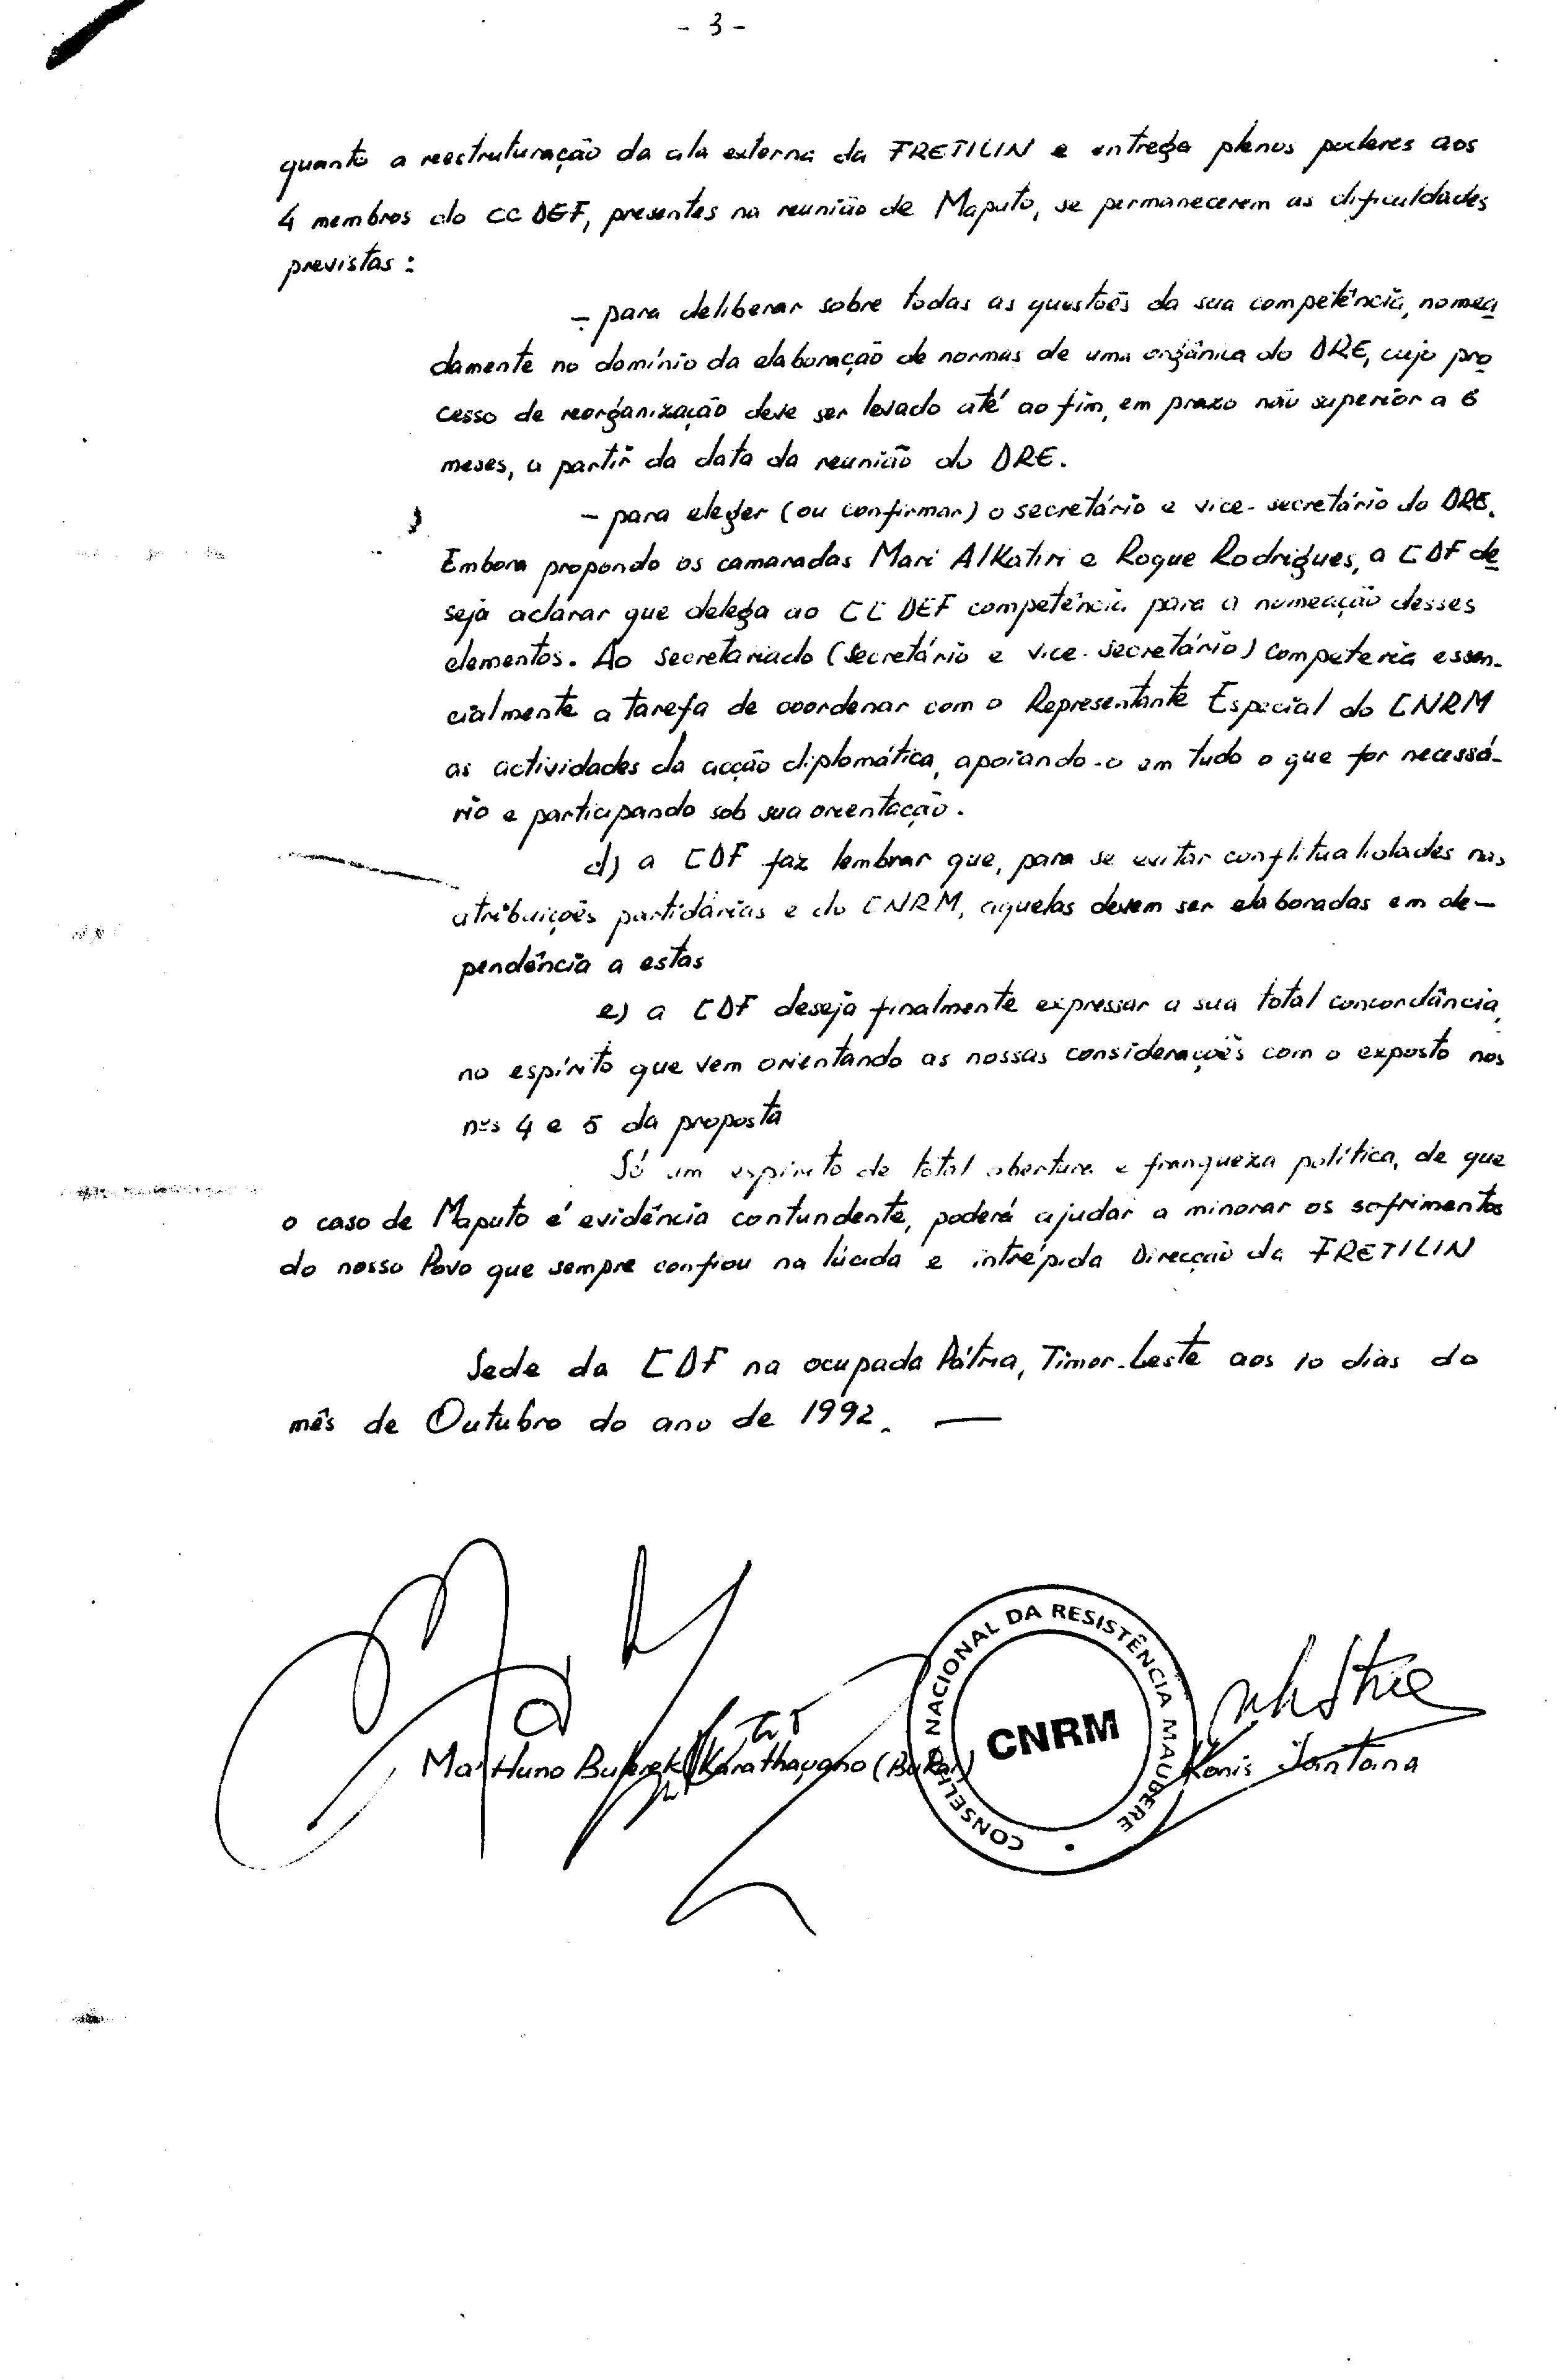 - 3 -
quanto a reestruturação da ala externa da FRETILIN e entrega plenos poderes aos
4 membros do CC DEF, presentes na reunião de Maputo, se permanecerem as dificuldades
previstas:
- para deliberar sobre todas as questões da sua competência, nomea
damente no domínio da elaboração de normas de uma orgânica do DRE, cujo pro
cesso de reorganização deve ser levado até ao fim, em prazo não superior a 6
meses, a partir da data da reunião do DRE.
- para eleger (ou confirmar) o secretário e vice-secretário do DRE.
Embora propondo os camaradas Mari Alkatiri e Roque Rodrigues, a CDF de
seja aclarar que delega ao CC DEF competência para a nomeação desses
elementos. Ao secretariado (secretário e vice-secretário) competeria essen-
cialmente a tarefa de coordenar com o Representante Especial do CNRM
as actividades da acção diplomática, apoiando-o em tudo o que for necessá-
rio e participando sob sua orientação.
d) a CDF faz lembrar que, para se evitar conflitualidades nas
atribuições partidárias e do CNRM, aquelas devem ser elaboradas em de-
pendência a estas
e) a CDF deseja finalmente expressar a sua total concordância,
no espírito que vem orientando as nossas considerações com o exposto nos
nºs 4 e 5 da proposta
Só um espírito de total abertura e franqueza política, de que
o caso de Maputo é evidência contundente, poderá ajudar a minorar os sofrimentos
do nosso Povo que sempre confiou na lúcida e intrépida Direcção da FRETILIN
Sede da CDF na ocupada Pátria, Timor-Leste aos 10 dias do
mês de Outubro do ano de 1992. —
CONSELHO NACIONAL DA RESISTÊNCIA MAUBERE
CNRM
Ma'Huno Bulerek Karathayano (Bukar)
Konis Santana